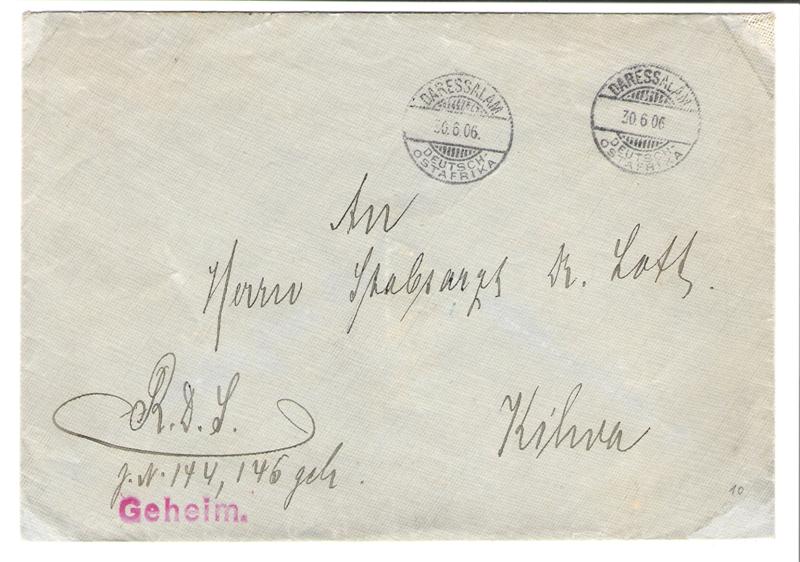 DARESSALAM
30.6.06.
DEUTSCH-
OSTAFRIKA
DARESSALAM
30.6.06
DEUTSCH-
OSTAFRIKA
An
Herrn Stabsarzt Dr. Lott.
Kilwa
R.D.S.
J.N. 144, 146 geh.
Geheim.
10